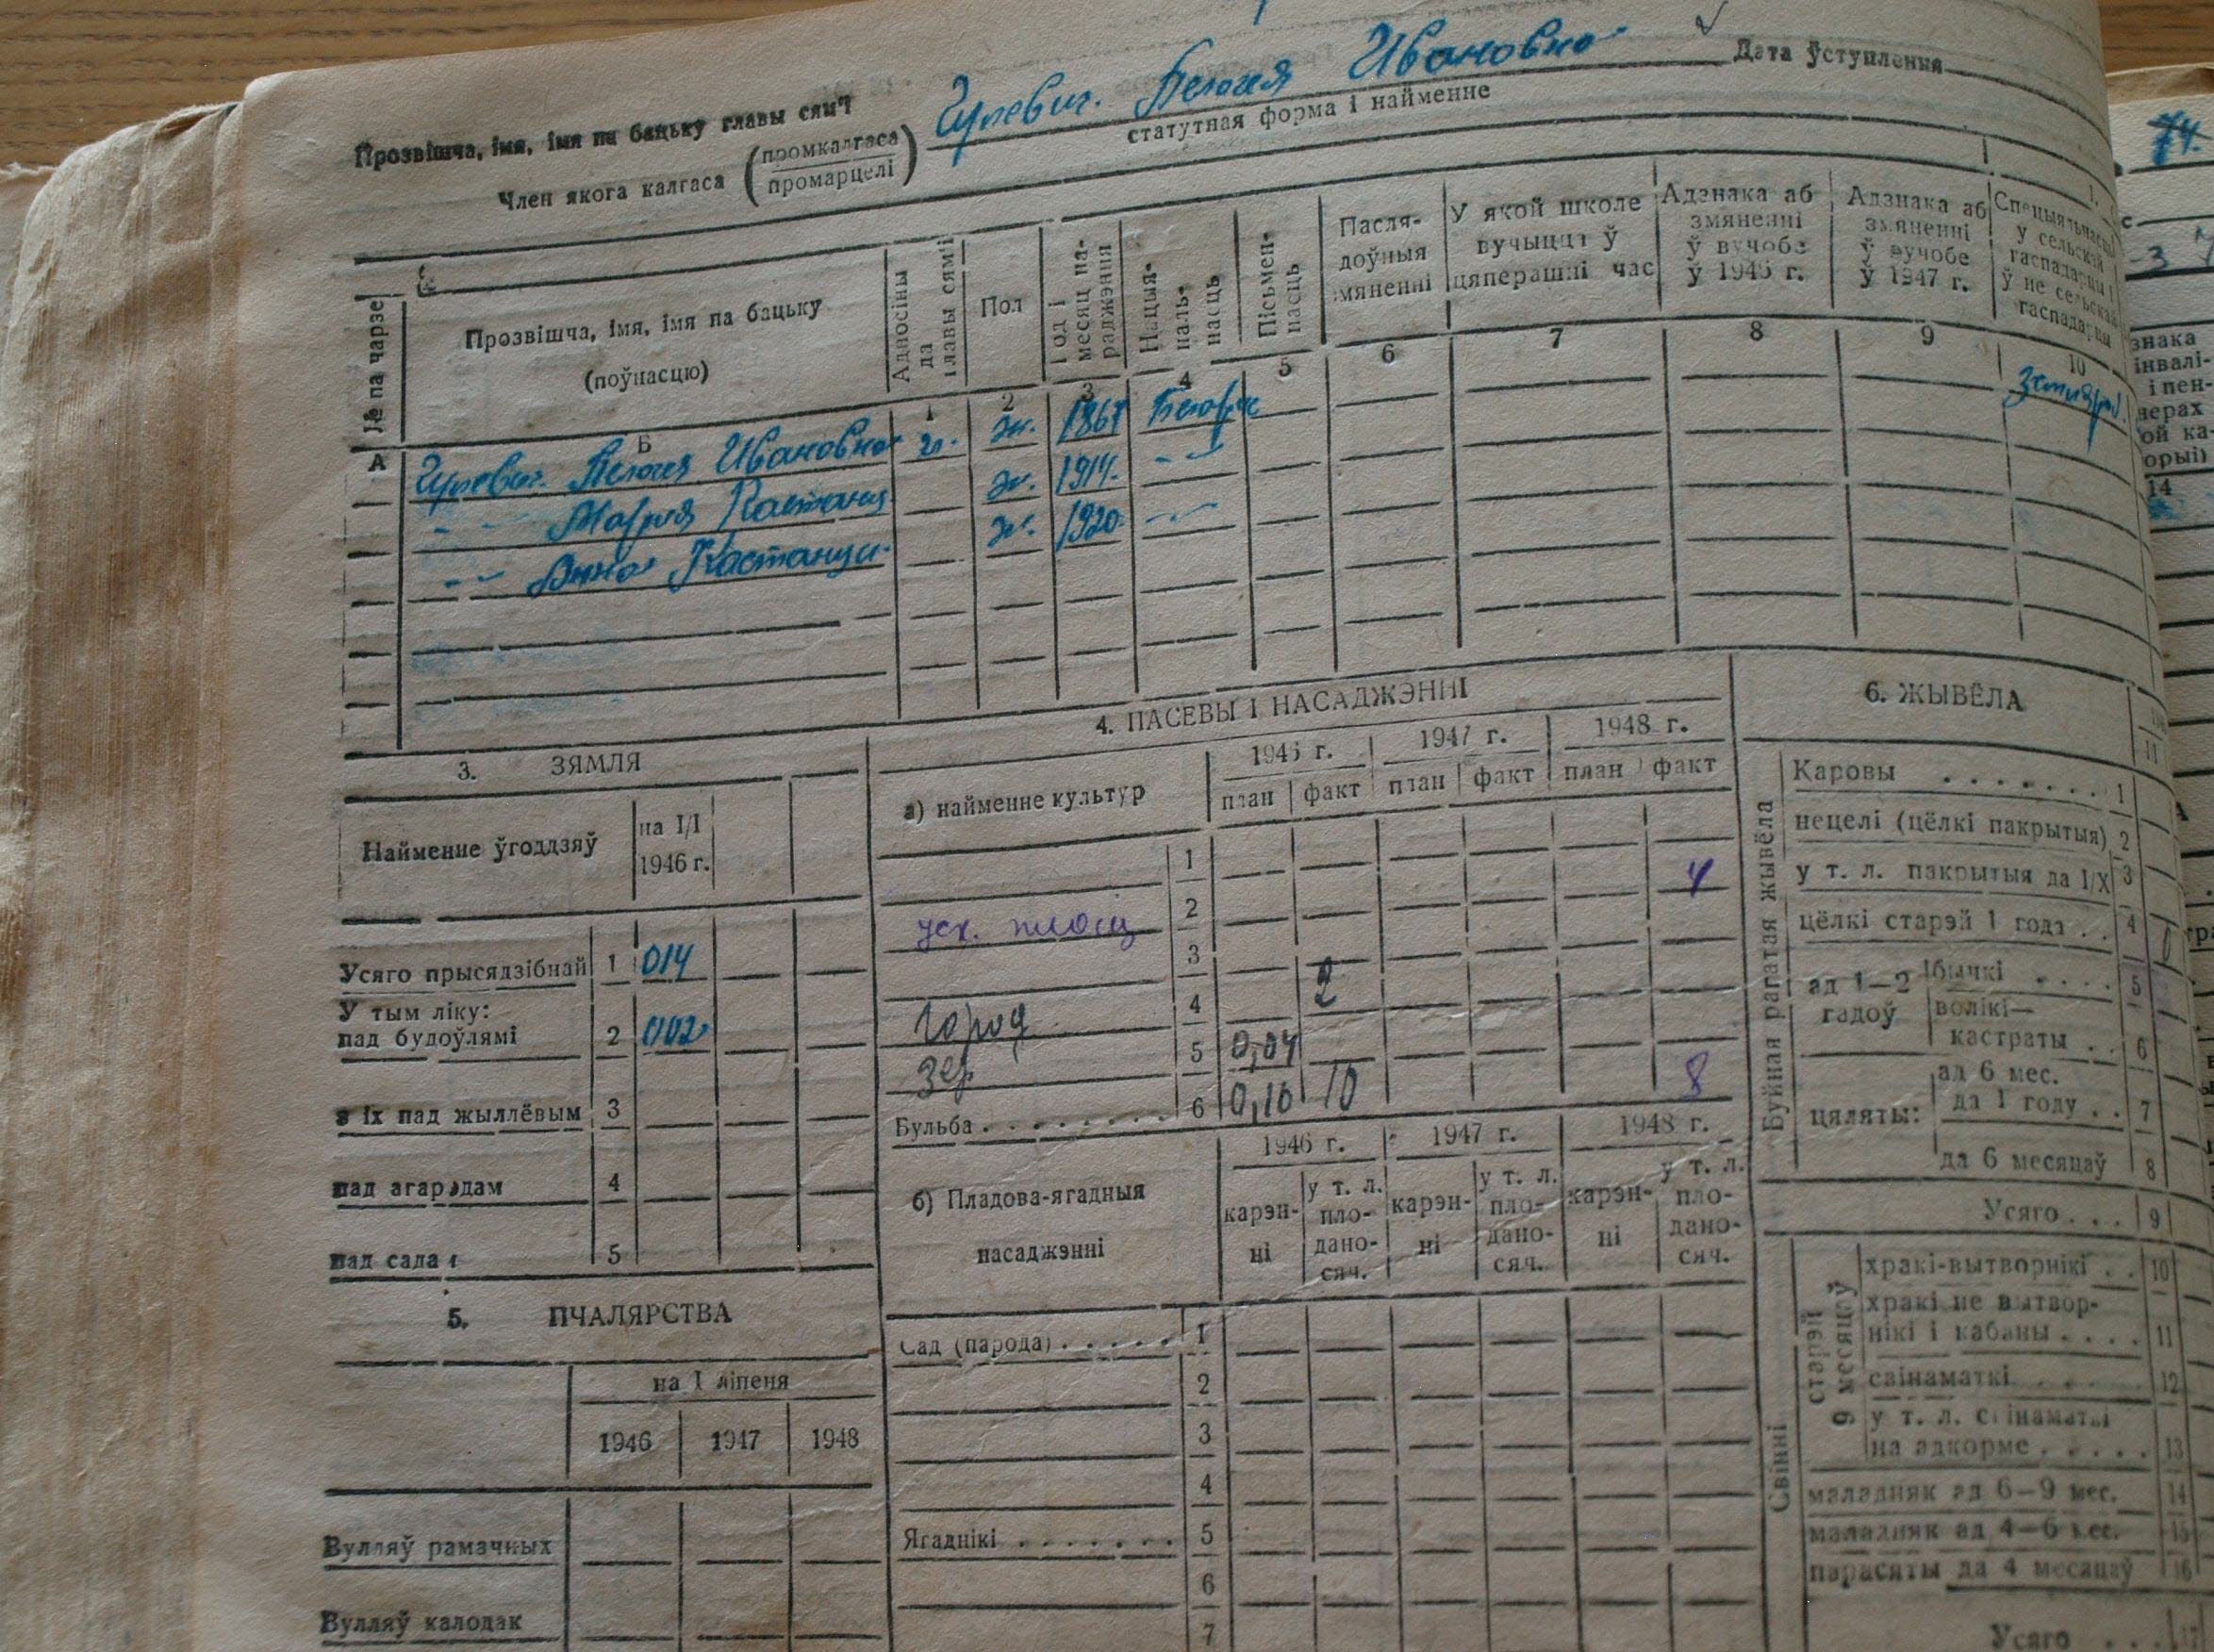 Прозвішча, імя, імя па бацьку главы сям'і Гулевич. Пелогея Ивановна Дата ўступлення
Член якога калгаса (промкалгаса промарцелі) статутная форма і найменне
74.
№ па чарзе
Прозвішча, імя, імя па бацьку (поўнасцю)
Адносіны да главы сям'і
Пол
Год і месяц нараджэння
Нацыянальнасць
Пісьменнасць
Пасля- доўныя змяненні
У якой школе вучыцца ў цяперашні час
Адзнака аб змяненні ў вучобе ў 1946 г.
Адзнака аб змяненні ў вучобе ў 1947 г.
Спецыяльнасць у сельскай гаспадарцы і ў не сельскай гаспадарцы
А Б 1 2 3 4 5 6 7 8 9 10
Гулевич. Пелогея Ивановна гл. ж. 1867 Белорус
-"- Мария Кастанц ж. 1914. -"-
-"- Анна Кастанци ж. 1920. -"-
3. ЗЯМЛЯ
Найменне ўгоддзяў на I/I 1946 г.
Усяго прысядзібнай 1 014
У тым ліку:
пад будоўлямі 2 002
з іх пад жыллёвым 3
пад агародам 4
пад садам 5
5. ПЧАЛЯРСТВА
на I ліпеня
1946 1947 1948
Вулляў рамачных
Вулляў калодак
4. ПАСЕВЫ І НАСАДЖЭННІ
а) найменне культур
1946 г. 1947 г. 1948 г.
план факт план факт план факт
1
ус. площ 2 4
3
город 4 2
Зер 5 0,04
Бульба 6 0,10 10 8
б) Пладова-ягадныя насаджэнні
1946 г. 1947 г. 1948 г.
карэн- ні у т. л. пло- дано- сяч. карэн- ні у т. л. пло- дано- сяч. карэн- ні у т. л. пло- дано- сяч.
Сад (парода) 1
2
3
4
Ягаднікі 5
6
7
6. ЖЫВЁЛА
Буйная рагатая жывёла
Каровы 1
нецелі (цёлкі пакрытыя) 2
у т. л. пакрытыя да I/X 3
цёлкі старэй 1 года 4
ад 1—2 гадоў
бычкі 5
волікі—кастраты 6
цяляты:
ад 6 мес. да 1 году 7
да 6 месяцаў 8
Усяго 9
Свінні
старэй 9 месяцаў
хракі-вытворнікі 10
хракі не вытвор-
нікі і кабаны 11
свінаматкі 12
у т. л. свінаматкі
на адкорме 13
маладняк ад 6—9 мес. 14
маладняк ад 4—6 мес. 15
парасяты да 4 месяцаў 16
Усяго 17